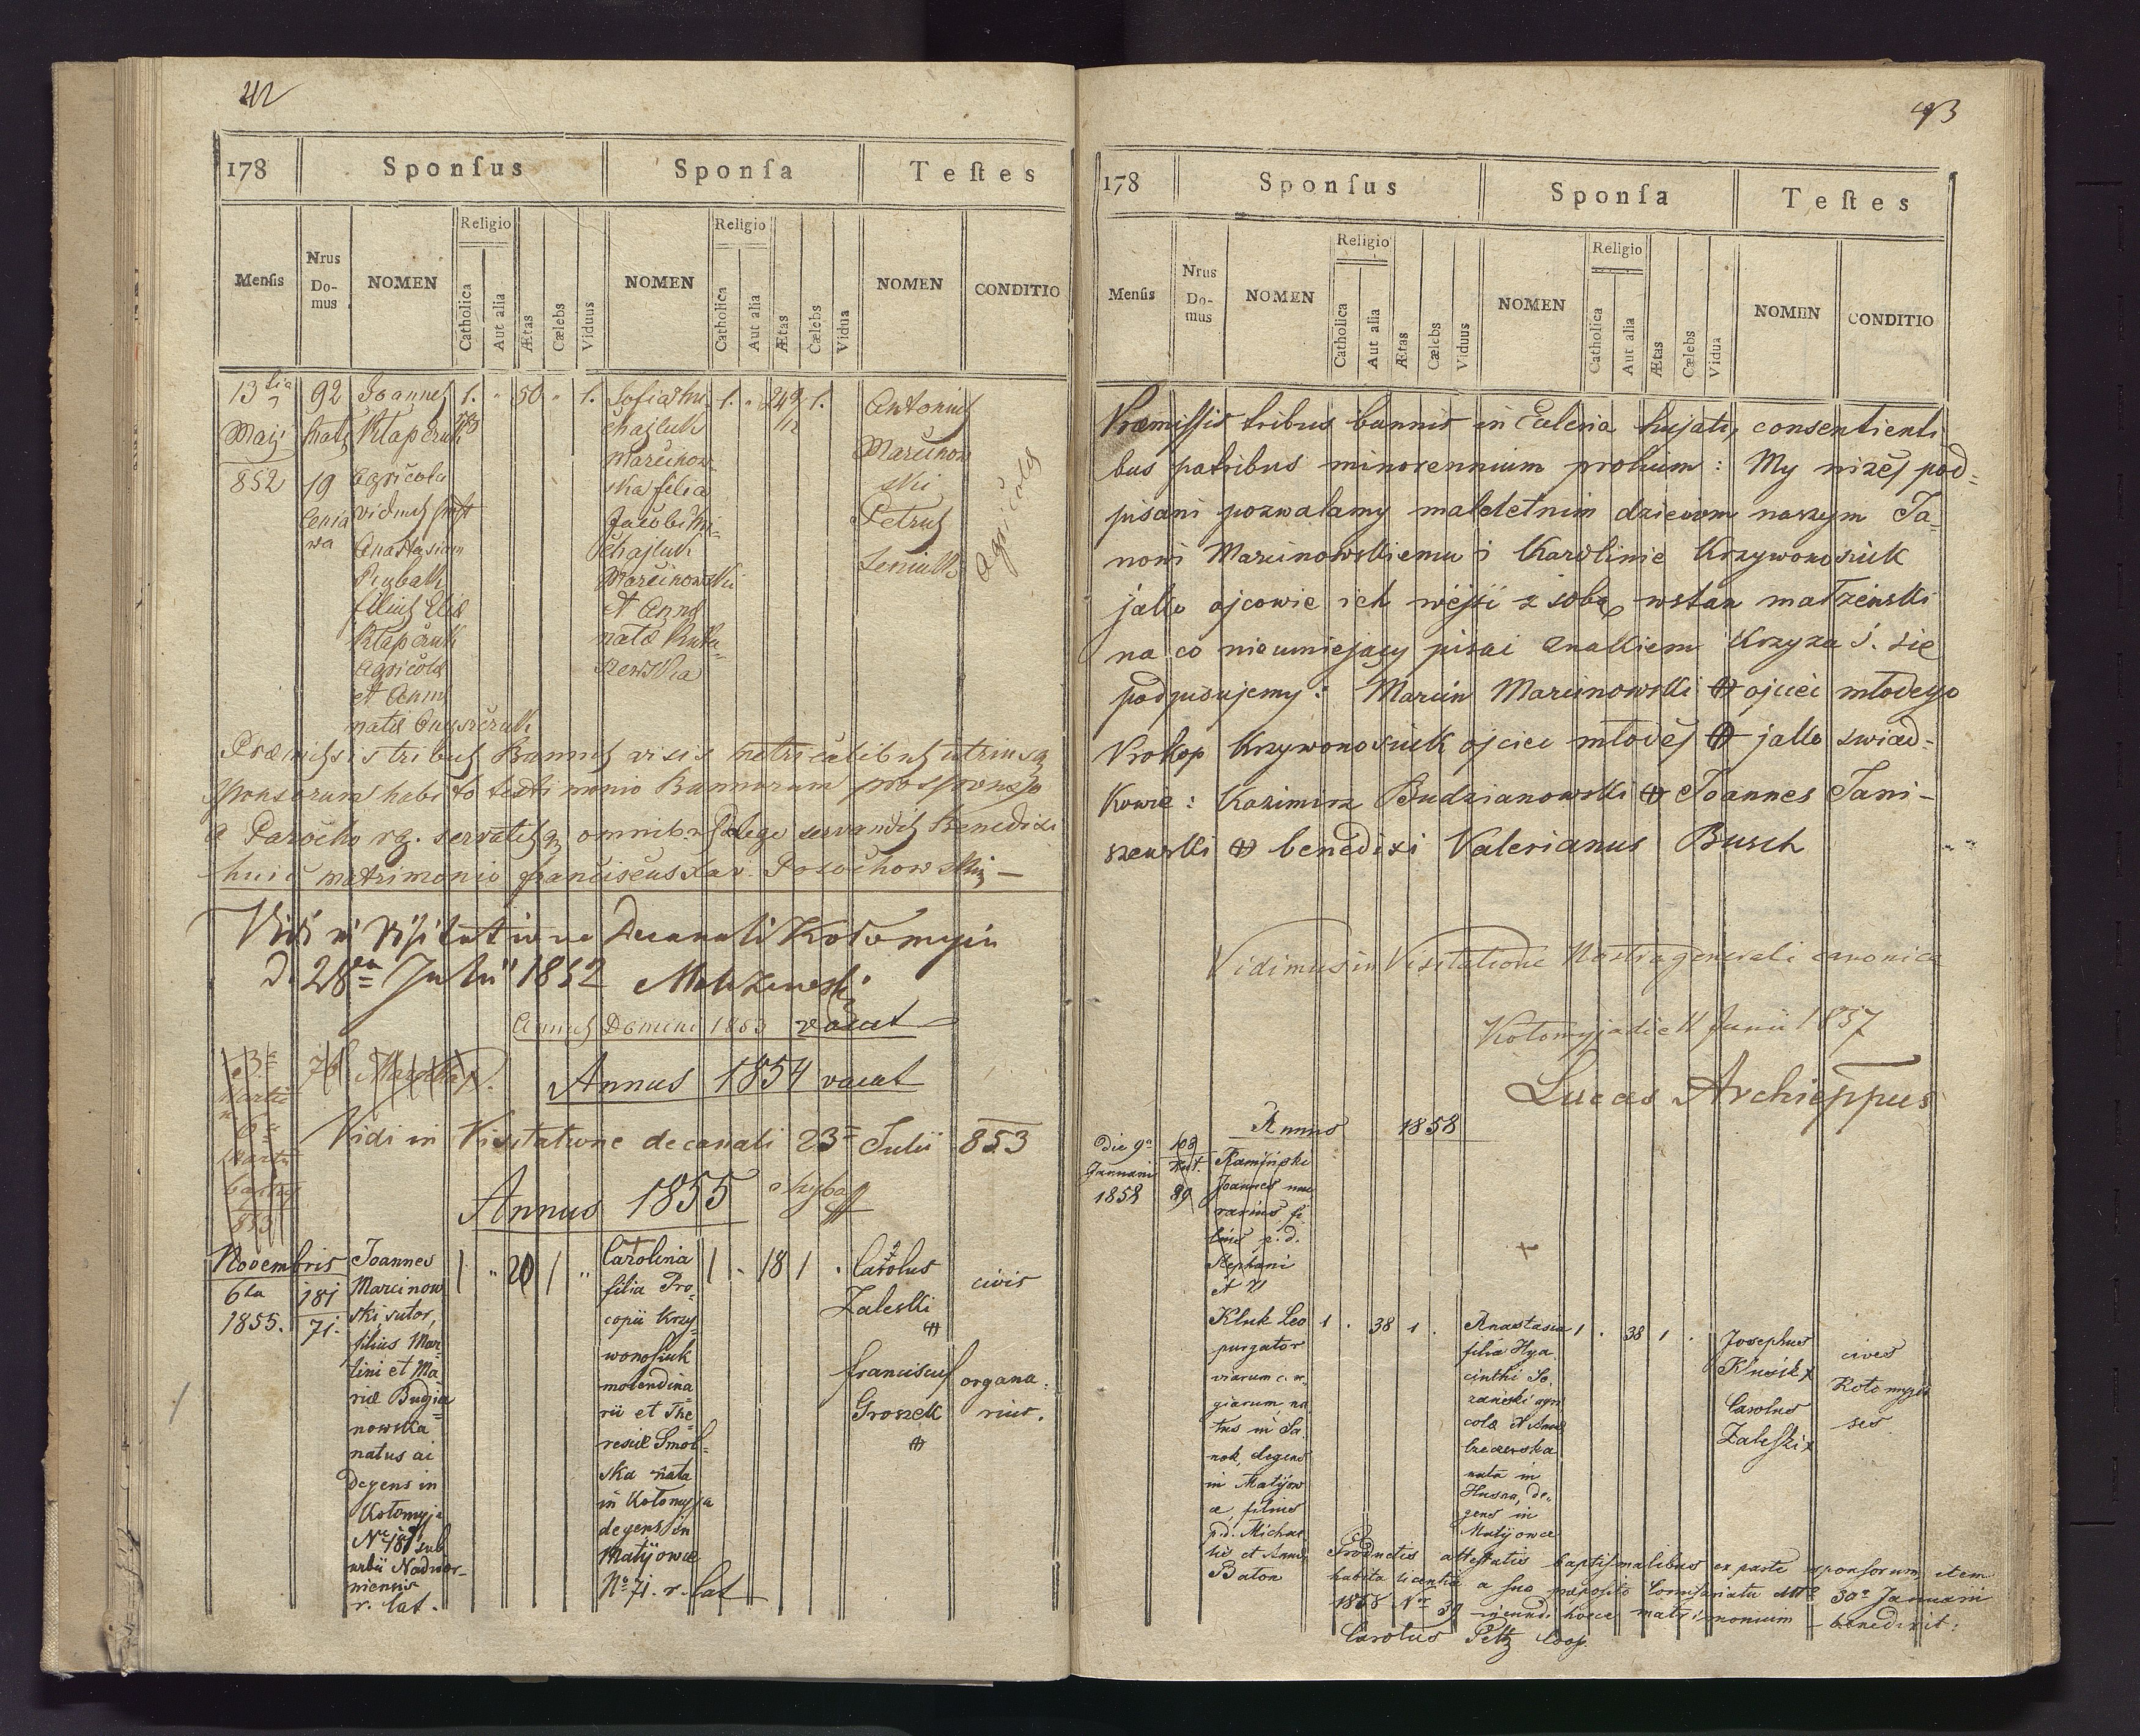 42
178 Sponſus Sponſa Teſtes
Menſis Nrus Do-mus NOMEN Religio Catholica Aut alia Ætas Cælebs Viduus NOMEN Religio Catholica Aut alia Ætas Cælebs Vidua NOMEN CONDITIO
13tia
Maij
852
92
19
Joannes
Klapczuk
Agricola
Anastasiam
filius Eliæ
Klapczuk
Agricolæ
et Annæ
natæ
1. " 50 " 1.
Sofia Mi
chajluk
Marcinow
ska filia
Jacobi Mi-
chajluk
Marcinowski
et Annæ
natæ
szewska
1. " 24 1.
Antonius
Marcinow
ski
Petrus
Agricolæ
Præmissis tribus Bannis visis metricalibus utriusq
sponsorum habito testimonio Bannorum pro sponso
a Parocho r.g. servatisq omnibus de lege servandis Benedixi
huic matrimonio Franciscus Xav.
Vidi in Visitatione Decanali Kołomyiæ
d. 28va Julii 1852
Annus Domini 1853 vacat
Annus 1854 vacat
Vidi in Visitatione decanali 23 Julii 853
Annus 1855
Novembris
6ta
1855.
181
71.
Joannes
Marcinow
ski, sutor,
filius Mar-
tini et Ma
riæ Budzia
nowska
natus ac
degens in
Kołomyja
Nro 181 sub
urbii Nadwor-
niensis
r. lat.
1 " 20 1 "
Carolina
filia Pro-
copii Krzy-
wonosiuk
molendina-
rii et The-
resiæ Smol-
ska nata
in Kołomyja
degens in
Matijowce
No 71. r. lat
1 . 18 1 .
Carolus
Zaleski
civis
Franciscus
Groszek
organa-
rius.
93
178 Sponſus Sponſa Teſtes
Menſis Nrus Do-mus NOMEN Religio Catholica Aut alia Ætas Cælebs Viduus NOMEN Religio Catholica Aut alia Ætas Cælebs Vidua NOMEN CONDITIO
Præmissis tribus bannis in Eclesia hujate, consentienti
bus patribus minorennium prolium: My niżej pod-
pisani pozwalamy małoletnim dzieciom naszym Ja-
nowi Marcinowskiemu i Karolinie Krzywonosiuk
jako ojcowie ich wejść z sobą w stan małżeński
na co nieumiejący pisać znakiem Krzyża ś. się
podpisujemy: Marcin Marcinowski ojciec młodego
Prokop Krzywonosiuk ojciec młodej jako świad-
kowie: Kazimirz Budzianowski Joannes Jani-
szewski benedixi Valerianus Busch
Vidimus in Visitatione Nostra generali canonica
Kołomyja die 11 Junii 1857
Lucas Archieppus
Annus 1858
Die 9a
Januarii
1858
103
89
Kamiński
Joannes mu
rarius fi
lius p.d.
Stephani
et N
Kluk Leo
purgator
viarum c. r.
giarum na
tus in Sa
nok, degens
in Matijow
ce, filius
p.d. Michae
lis et Annæ
Baton
1 . 38 1 .
Anastasia
filia Hya
cinthi
colæ
nata in
Husna, de-
gens in
Matijowce
1 . 38 1 .
Josephus
Carolus
Zaleski x
cives
Kołomyjen
ses
Productis attestatis baptismalibus ex parte sponsorum item
habita licentia a suo præposito Comisariatu 30a Januarii
1858 Nro 39 ineundi hocce matrimonium benedixit:
Carolus Peltz Coop.